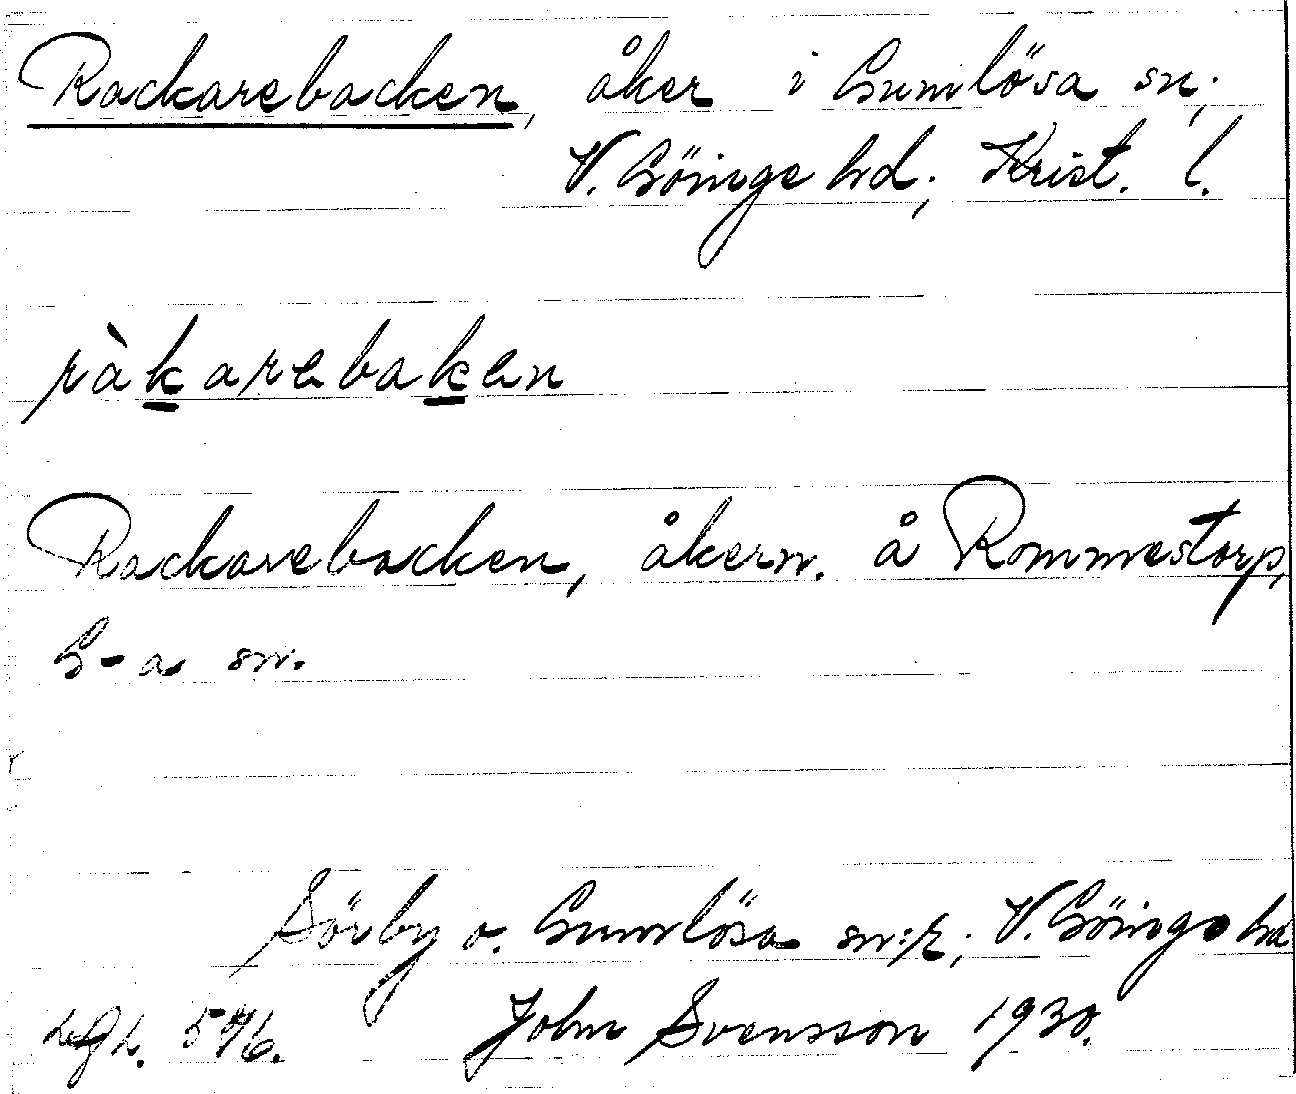 Rackarebacken, åker i Gumlösa sn;
V. Göinge hd; Krist. l.
ràkarebaken
Rackarebacken, åkern. å Rommestorp,
G-a sn.
Sörby o. Gumlösa sn:r; V. Göinge hd
John Svensson 1930.